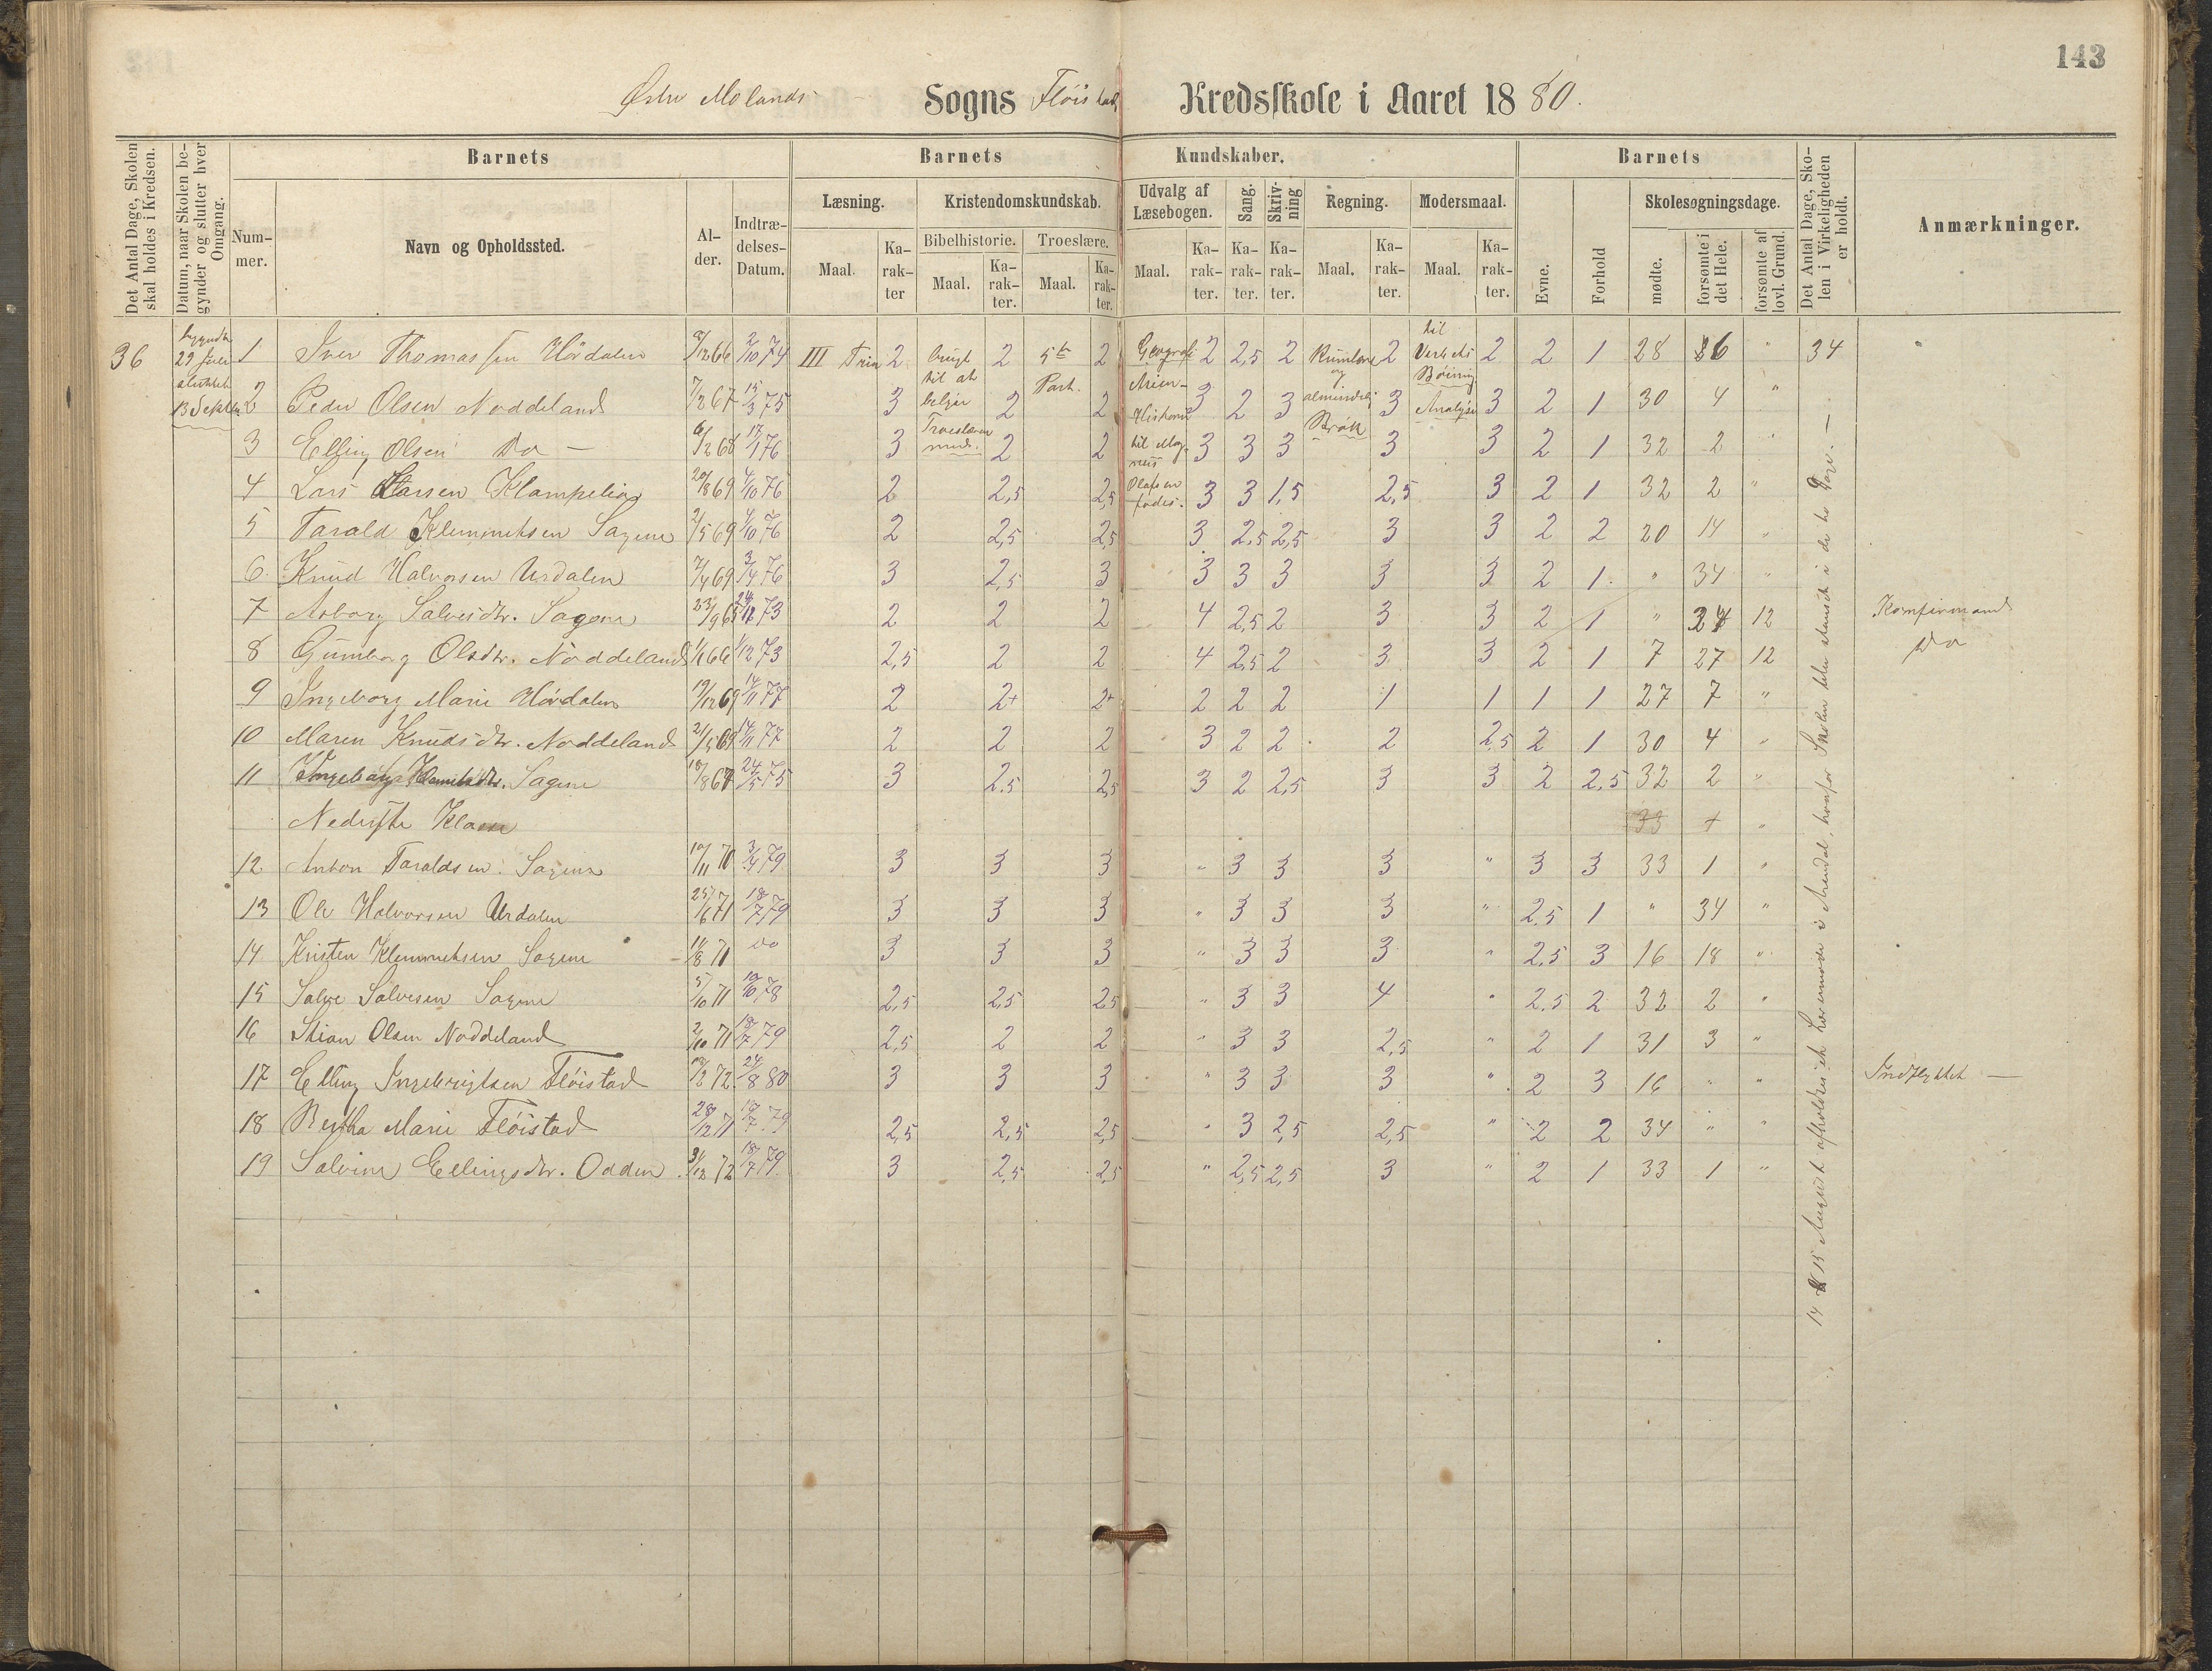 143
Østre Molands Sogns Fløistad Kredsskole i Aaret 1880.
Det Antal Dage, Skolen skal holdes i Kredsen.
Datum, naar Skolen begynder og slutter hver Omgang.
Barnets
Nummer.
Navn og Opholdssted.
Alder.
Indtrædelses-Datum.
Barnets Kundskaber.
Læsning.
Maal.
Karakter
Kristendomskundskab.
Bibelhistorie.
Maal.
Karakter.
Troeslære.
Maal.
Karakter.
Udvalg af Læsebogen.
Maal.
Karakter.
Sang.
Karakter.
Skrivning
Karakter.
Regning.
Maal.
Karakter.
Modersmaal.
Maal.
Karakter.
Barnets
Evne.
Forhold
Skolesøgningsdage.
mødte.
forsømte i det Hele.
forsømte af lovl. Grund.
Det Antal Dage, Skolen i Virkeligheden er holdt.
Anmærkninger.
36
begyndte
29 Juli
sluttet
13 Septbr
III Trin
brugt
til at
belyse
Troeslæren
med.
5te
Part.
Geografi
Historie
til Mag-
nus
Olafsen
fødes.
og
almindelig
Brøk
til
Verbets
Bøining
Analyse
34
1 Iver Thomassen Hørdalen 8/12 66 2/10 74 2 2 2 2 2,5 2 2 2 2 1 28 6 "
2 Peder Olsen Noddeland 7/2 67 15/3 75 3 2 2 3 2 3 3 3 2 1 30 4 "
3 Elling Olsen Do — 6/2 68 17/1 76 3 2 2 3 3 3 3 3 2 1 32 2 "
4 Lars Larsen Klampelien 20/8 69 4/10 76 2 2,5 2,5 3 3 1,5 2,5 3 2 1 32 2 "
5 Tarald Klemmetsen Sagene 2/5 69 4/10 76 2 2,5 2,5 3 2,5 2,5 3 3 2 2 20 14 "
6. Knud Halvorsen Urdalen 7/4 69 3/4 76 3 2,5 3 3 3 3 3 3 2 1 " 34 "
7 Asborg Salvesdtr. Sagene 23/9 65 24/12 73 2 2 2 4 2,5 2 3 3 2 1 " 34 12 Konfirmand
8 Gunborg Olsdtr. Noddeland 1/1 66 1/12 73 2,5 2 2 4 2,5 2 3 3 2 1 7 27 12 Do
9 Ingeborg Marie Hørdalen 19/12 69 14/11 77 2 2+ 2+ 2 2 2 1 1 1 1 27 7 "
10 Maren Knudsdtr. Noddeland 21/5 69 14/11 77 2 2 2 3 2 2 2 2,5 2 1 30 4 "
11 Ingeborg Klemmetsdtr. Sagene 18/8 67 24/5 75 3 2,5 2,5 3 2 2,5 3 3 2 2,5 32 2 "
Nederste Klasse
12 Anton Taraldsen Sagene 10/11 70 3/4 79 3 3 3 " 3 3 3 " 3 3 33 1 "
13 Ole Halvorsen Urdalen 25/6 71 18/7 79 3 3 3 " 3 3 3 " 2,5 1 " 34 "
14 Kristen Klemmetsen Sagene 14/8 71 do 3 3 3 " 3 3 3 " 2,5 3 16 18 "
15 Salve Salvesen Sagene 5/10 71 10/10 78 2,5 2,5 2,5 " 3 3 4 " 2,5 2 32 2 "
16 Stian Olsen Noddeland 2/10 71 18/7 79 2,5 2 2 " 3 3 2,5 " 2 1 31 3 "
17 Elling Ingebrigtsen Fløistad 13/2 72 24/8 80 3 3 3 " 3 3 3 " 2 3 16 " " Indflyttet —
18 Bertha Marie Fløistad 28/12 71 18/7 79 2,5 2,5 2,5 " 3 2,5 2,5 " 2 2 34 " "
19 Salvine Ellingsdtr. Odden 31/12 72 18/7 79 3 2,5 2,5 " 2,5 2,5 3 " 2 1 33 1 "
14 & 15 August afholdtes et Læremøde i Arendal, hvorfor Skolen blev standset i de to Dage. —